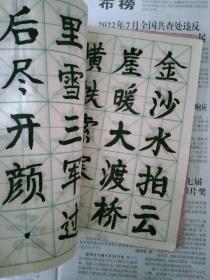 布榜
2022年7月全国共查处违反
起
金沙水拍云
崖暖大渡桥
横铁索寒
里雪三军过
后尽开颜
七届
片奖